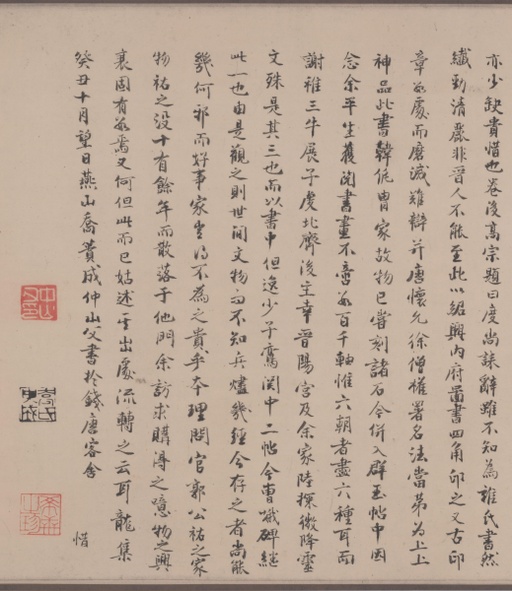 亦少缺貴惜也卷後高宗題曰度尚誄辭雖不知為誰氏書然
纖勁清麗非晉人不能至此以紹興內府圖書四角印之又古印
章數處而磨滅難辯并唐懷允徐僧權署名法當第為上上
神品此書韓侂胄家故物已嘗刻諸石今併入群玉帖中因
念余平生獲閱書畫不啻數百千軸惟六朝者盡六種耳而
謝稚三牛展子虔北齊後主幸晉陽宮及余家陸探微降靈
文殊是其三也而以書中但逸少子鸞閑中二帖今曹娥碑繼
此一也由是觀之則世間文物之不知兵燼幾經今存之者尚能
幾何邪而好事家豈得不為之貴乎本理問官郭公祐之家
物祐之沒十有餘年而散落于他門余訪求購得之噫物之興
衰固有數焉又何但此而已姑述其出處流轉之云耳龍集
癸丑十月望日燕山喬簣成仲山父書於錢唐客舍
惜